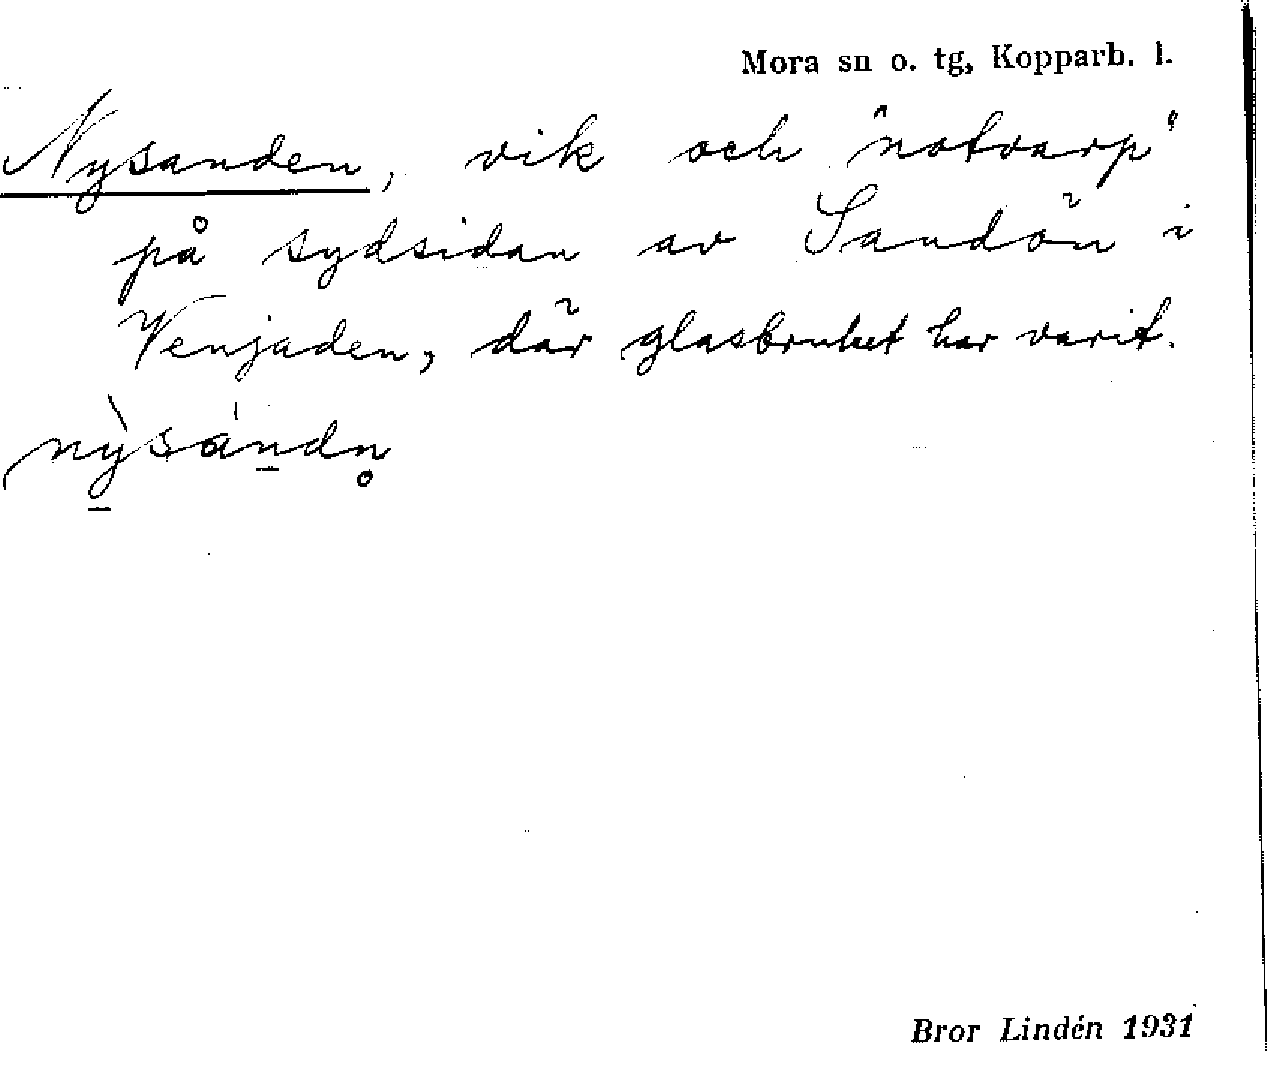 Mora sn o. tg, Kopparb. l.
Nysanden, vik och "notvarp"
på sydsidan av Sandön i
Venjaden, där glasbruket har varit.
nỳ̠sán̠dn̥
Bror Lindén 1931